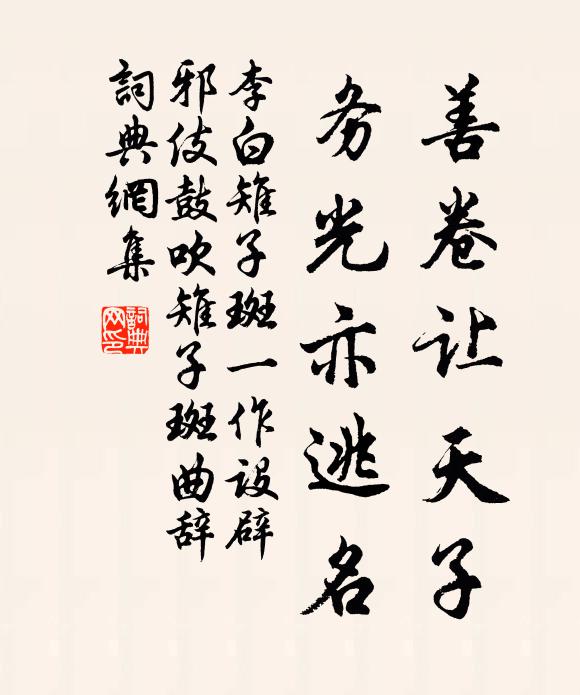 善卷让天子
务光亦逃名
李白雉子斑一作设辟
邪伎鼓吹雉子斑曲辞
詞典網集
詞典
网印